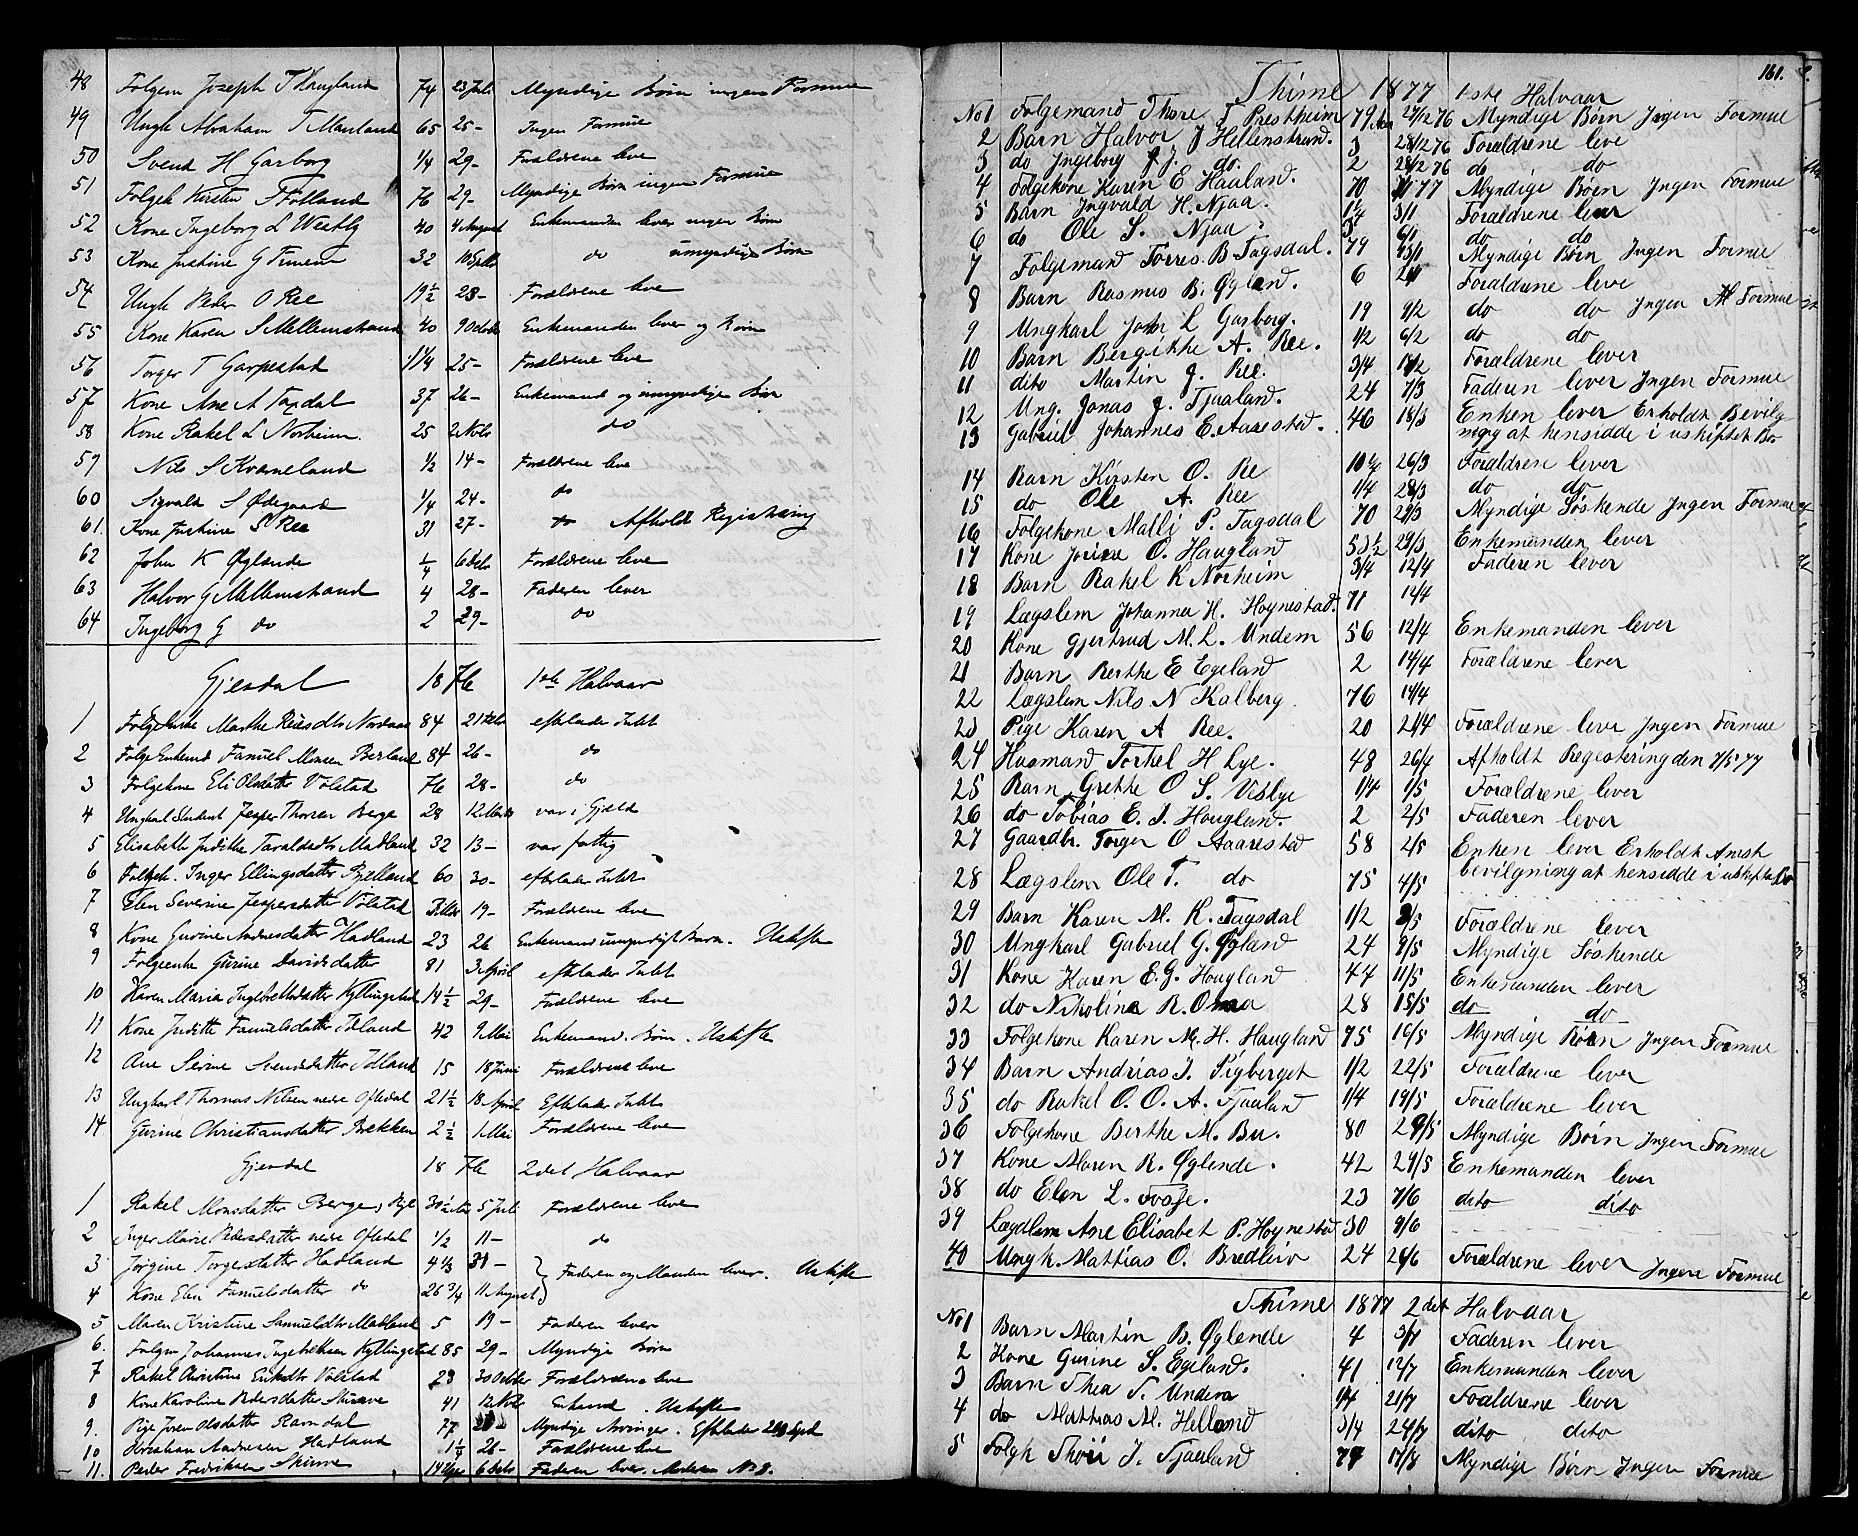 48 Folgem Joseph T Haugland 74 23 Juli Myndige Børn ingen Formue
49 Ungk Abraham T Mauland 65 25- Ingen Formue
50 Svend H Garborg 1/4 29- Forældrene leve
51 Folgek Kirsten Folland 76 29- Myndige Børn ingen Formue
52 Kone Ingeborg L Westly 40 4 August Enkemanden lever ingen Børn
53 Kone Justine G 32 10 Septb do umyndige Børn
54 Ungk Peder O Ree 19 1/2 28- Forældrene leve
55 Kone Karen S Mellemstrand 40 9 October Enkemanden lever og Børn
56 Torger T Garpestad 1 1/4 25- Forældrene leve
57 Kone Ane A Taxdal 37 26- Enkemand og umyndige Børn
58 Kone Rakel L Norheim. 25 2 Novb do
59 Nils S Kverneland 1/2 14- Forældrene leve
60 Sigvald S Ødegaard 1/4 24- do
61. Kone Justine S Ree 31 27- do Afholdt Registrering
62 John K Øglænde 1/4 6 Deb Forældrene leve
63 Halvor G Mellemstrand 4 28- Faderen lever
64 Ingeborg G do 2 29- do
Gjesdal 1876 1ste Halvaar
1 Folgeenke Marthe 84 21 Feb efterlader Intet
2 Folge Enkemd Samuel Monsen Berland 84 26- do
3 Folgekone Eli Olsdatter Volstad 76 28- do
4 Ungkarl Student Jesper Thorsen Berge 28 12 Marts var i Gjæld
5 Elisabeth Judithe Taraldsdtr Madland 32 13- var fattig
6 Folgek. Inger Ellingsdatter Bjelland 60 30- efterlader Intet
7 Elen Severine Jespersdatter Volstad 19- Forældrene leve
8 Kone Gurine Andreasdatter Hadland 23 26 Enkemand umyndigt Barn. Uskifte
9 Folgeenke Gurine Davidsdatter 81 3 April efterlader Intet
10 Karen Maria Ingebrethsdatter Kyllingstad 14 1/2 29- Forældrene leve
11 Kone Judith Samuelsdatter Idland 42 9 Mai Enkemand. Børn. Uskifte
12 Ane Serine Svendsdatter Idland 15 18 Juni Forældrene leve
13 Ungkarl Thomas Nilsen nedre Oftedal 21 1/2 18 April Efterlader Intet
14 Gurine Christiansdatter Bekken 2 1/2 1 Mai Forældrene leve
Gjesdal 1876 2det Halvaar
1 Rakel Monsdatter Berge, Pige 30 5 Juli Forældrene leve
2 Inger Marie Pedersdatter nedre Oftedal 1/2 11- do
3 Jørgine Torgersdatter Hadland 4 1/3 31- Faderen og Manden lever. Uskifte
4 Kone Elen Samuelsdatter do 26 3/4 11 August
5 Maren Kristine Samuelsdtr Madland 5 19- Faderen lever
6. Folgm Johannes Ingebretsen Kyllingstad 85 29- Myndige Børn
7 Rakel Christine Eriksdtr Volstad 23 30 October Forældrene leve
8 Kone Karoline Pedersdatter Skurve 41 12 Nov Enkemd. Uskifte
9. Pige Joren Olsdatter Ravndal 77 Myndige Arvinger. Efterlader
10 Abraham Andreasen Hadland 1 1/4 26- Forældrene leve
11. Peder Fredriksen Skurve 14 Dge 6 Deb Faderen lever. Moderen No 8.
161.
Thime 1877 1ste Halvaar
No 1 Folgemand Thore T Prestheim 79 Aar 27/12 76 Myndige Børn Ingen Formue
2 Barn Halvor J Hellemstrand. 3 28/12 76 Forældrene leve
3 do Ingeborg J. do. 2 28/12 76 do do
4 Folgekone Karen E Haaland. 70 1/1 77 Myndige Børn Ingen Formue
5 Barn Ingvald H. Njaa. 1 1/4 3/1 Forældrene lever
6 do Ole S. Njaa 3 6/1 do do
7 Folgemand Torres B Tagsdal. 79 23/1 Myndige Børn Ingen Formue
8 Barn Rasmus B. Øglend. 6 Forældrene leve
9 Ungkarl John L Garberg. 19 9/2 do do Ingen Formue
10 Barn Bergithe A. Ree. 1/2 6/2 do do
11 dito Martin J. Ree. 3/4 18/2 Forældrene lever
12 Ung. Jonas J. Tjaaland. 24 7/3 Faderen lever Ingen Formue
13 Gabriel Johannes E. Aarestad. 46 18/3 Enken lever Erholdt Bevilg
ning at hensidde i uskiftet Bo
14 Barn Kirsten O. Re 10 26/3 Forældrene lever
15 do Ole A. Ree 1/4 28/3 do do
16 Folgekone Malli P. Tagsdal 70 29/3 Myndige Søskende Ingen Formue
17 Kone Jorine O. Haugland 53 1/2 29/3 Enkemanden lever
18 Barn Rakel K Norheim 3/4 12/4 Faderen lever
19 Lægslem Johanna H. Høynestad. 71 12/4
20 Kone Gjertrud M. L. Undem 56 12/4 Enkemanden lever
21 Barn Berthe E Egeland 2 14/4 Forældrene lever
22 Lægslem Nils N Kalberg. 76 14/4
23 Pige Karen A Ree. 20 21/4 Forældrene lever Ingen Formue
24 Husmand Torkel H Lye. 48 26/4 Afholdt Registering den 7/5 77
25 Barn Grethe O S. Vislye 1/4 1/5 Forældrene lever
26 do Tobias E. J. Hougland. 2 2/5 Faderen lever
27 Gaardbr. Torger O Aaarestad 58 2/5 Enken lever Erholdt Amst
bevilgning at hensidde i uskiftet Bo
28 Lægslem Ole T. do 75 4/5
29 Barn Karen M. K. Tagsdal 1/2 8/5 Forældrene lever
30 Ungkarl Gabriel G. Øgland 24 9/5 Myndige Søskende
31 Kone Karen E. G. Hougland 44 11/5 Enkemanden lever
32 do Nikoline R. Omaa 28 15/5 do do
33 Folgekone Karen M. H. Haugland 75 16/5 Myndige Børn Ingen Formue
34 Barn Andrias J. Sigberget 1/2 22/5 Forældrene lever
35 do Rakel O. O. A. Tjaaland 1/4 19/5 Forældrene lever
36 Folgekone Berthe M. Bu. 80 29/5 Myndige Børn Ingen Formue
37 Kone Maren R. Øglende. 42 29/5 Enkemanden lever
38 do Elen L. Fosse. 23 7/6 dito dito
39 Lægdlem Ane Elisabet P. Høynestad 30 9/6
40 Ungk. Mathias O. Bredlivo 24 26/6 Forældrene lever Ingen Formue
Thime 1877 2det Halvaar
No 1 Barn Martin B. Øglende 4 3/7 Faderen lever
2 Kone Gurine S. Egeland. 41 12/7 Enkemanden lever
3 Barn Thea T. Undem 1/4 21/7 Forældrene lever
4 do Mathias M. Helland 3/4 24/7 dito dito
5 Folgk J. Tjaaland 77 17/8 Myndige Børn Ingen Formue